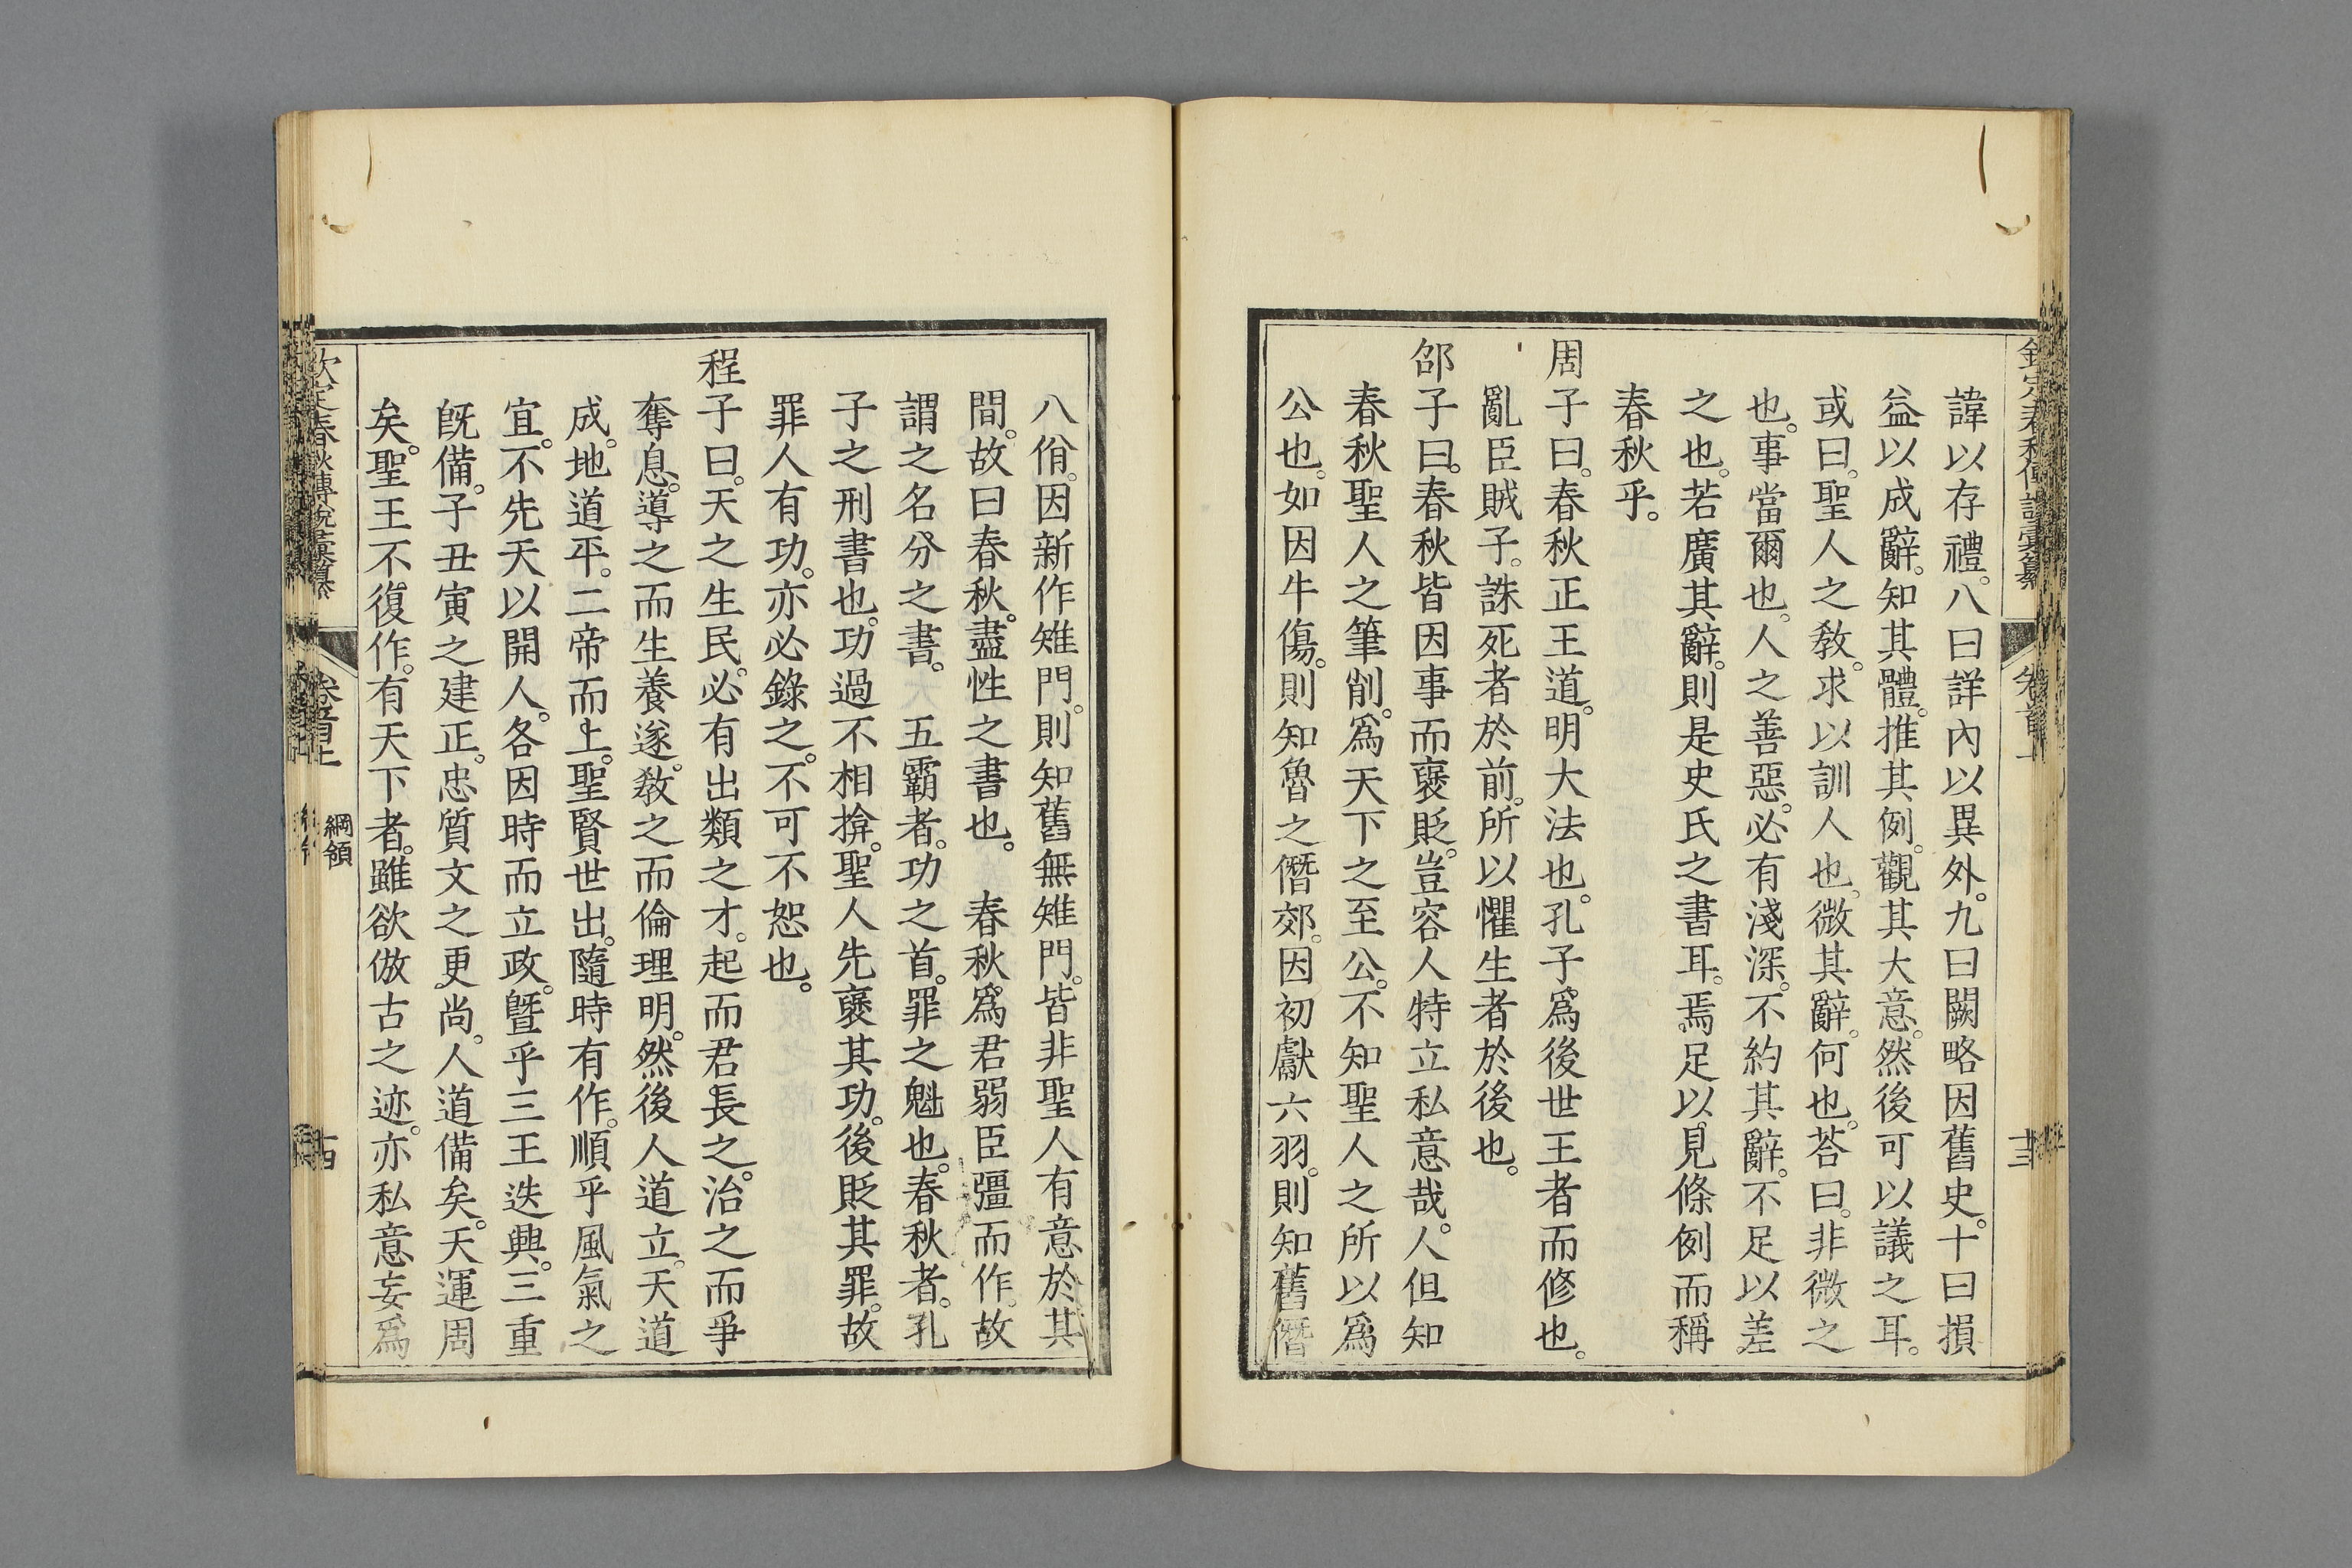 諱以存禮。八曰詳內以異外。九曰闕略因舊史。十曰損
益以成辭。知其體。推其例。觀其大意。然後可以議之耳。
或曰。聖人之教。求以訓人也。微其辭。何也。荅曰。非微之
也。事當爾也。人之善惡。必有淺深。不約其辭。不足以差
之也。若廣其辭。則是史氏之書耳。焉足以見條例而稱
春秋乎。
周子曰。春秋正王道。明大法也。孔子爲後世王者而修也。
亂臣賊子。誅死者於前。所以懼生者於後也。
邵子曰。春秋皆因事而襃貶。豈容人特立私意哉。人但知
春秋聖人之筆削。爲天下之至公。不知聖人之所以爲
公也。如因牛傷。則知魯之僭郊。因初獻六羽。則知舊僭
八佾。因新作雉門。則知舊無雉門。皆非聖人有意於其
間。故曰春秋。盡性之書也。　春秋爲君弱臣彊而作。故
謂之名分之書。　五霸者。功之首。罪之魁也。春秋者。孔
子之刑書也。功過不相揜。聖人先襃其功。後貶其罪。故
罪人有功。亦必錄之。不可不恕也。
程子曰。天之生民。必有出類之才。起而君長之。治之而爭
奪息。導之而生養遂。教之而倫理明。然後人道立。天道
成。地道平。二帝而上。聖賢世出。隨時有作。順乎風氣之
宜。不先天以開人。各因時而立政。曁乎三王迭興。三重
旣備。子丑寅之建正。忠質文之更尚。人道備矣。天運周
矣。聖王不復作。有天下者。雖欲倣古之迹。亦私意妄爲
欽定春秋傳說彙纂　卷首上　綱領　十四